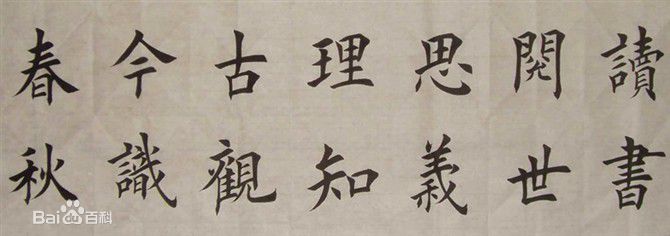 讀書
閱世
思義
理知
古觀
今識
春秋
Baidu百科